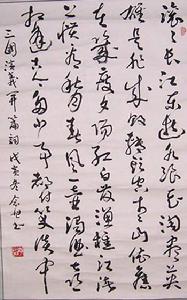 滚滚长江东逝水浪花淘尽英
雄是非成败转头空青山依旧
在几度夕阳红白发渔樵江渚
上惯看秋月春风一壶浊酒喜
相逢古今多少事都付笑谈中
三國演義開篇詞戊寅冬